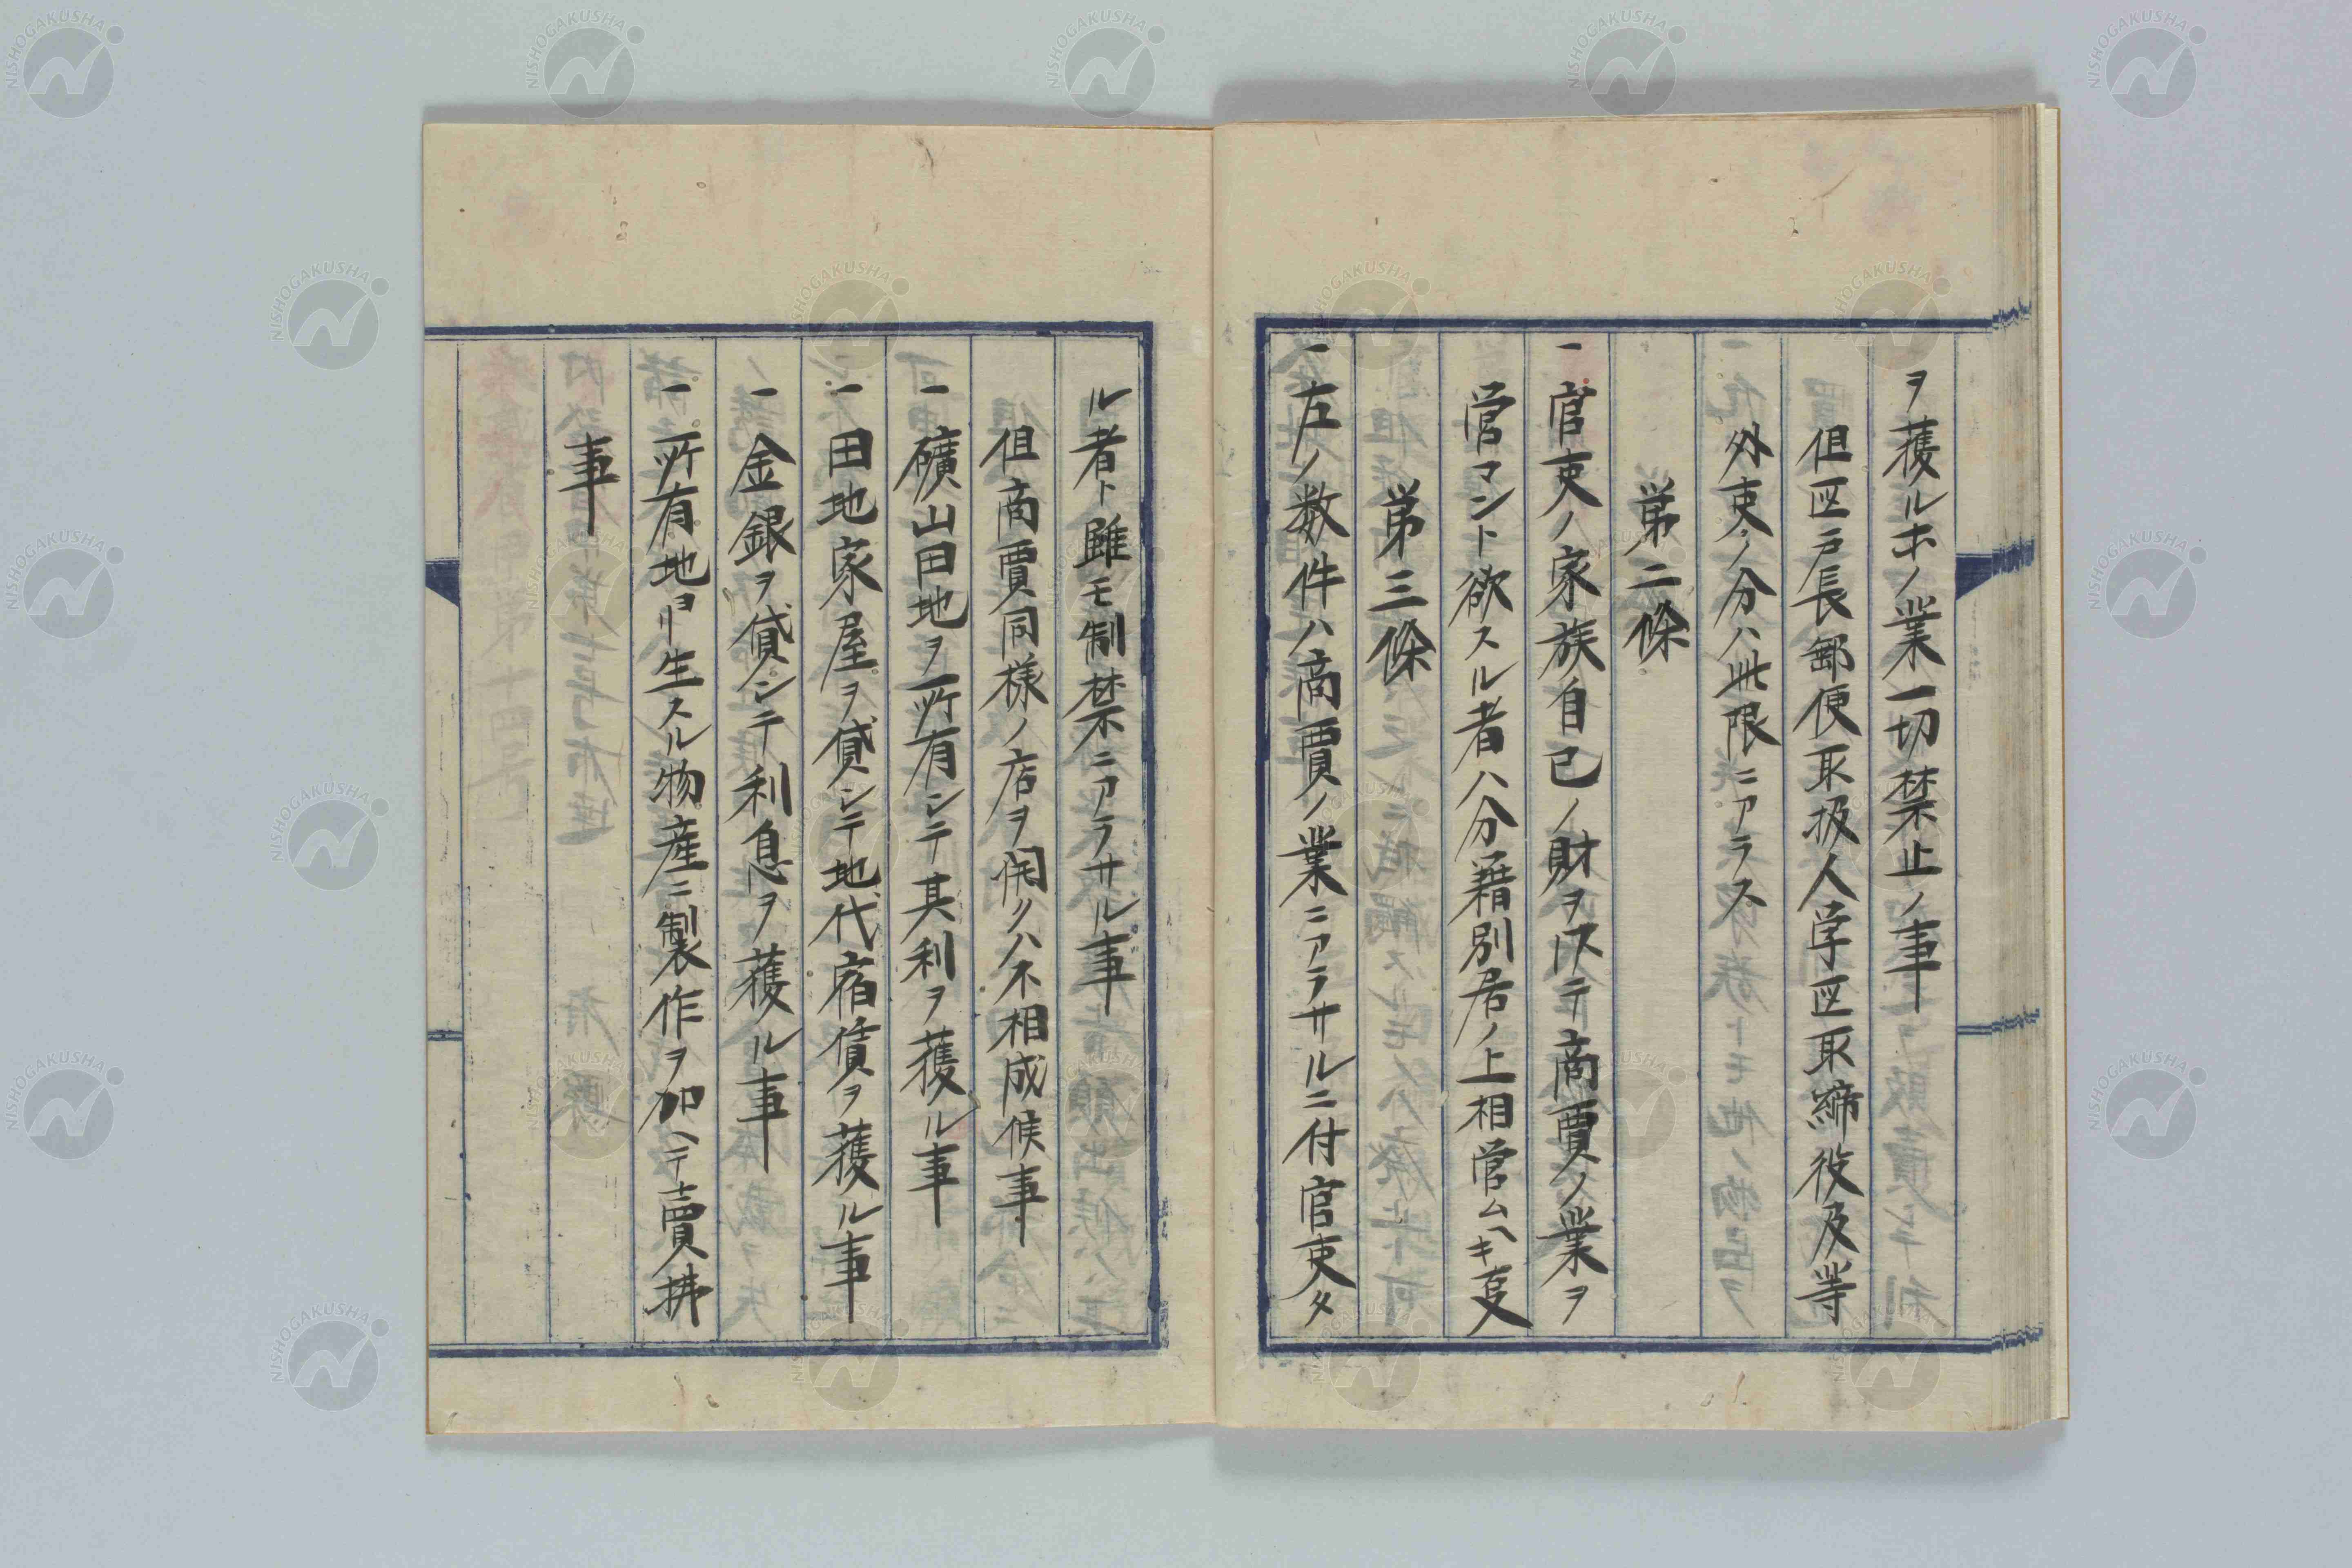 ヲ獲ルホノ業一切禁止ノ事
但区戸長郵便取扱人学区取締役及等
外吏ノ分ハ此限ニアラス
第二條
一官吏ノ家族自己ノ財ヲ以テ商賈ノ業ヲ
営マント欲スル者ハ分籍別居ノ上相営ムヘキ㕝
第三條
一左ノ数件ハ商賈ノ業ニアラサルニ付官吏タ
ル者ト雖モ制禁ニアラサル事
但商賈同様ノ店ヲ開クハ不相成候事
一礦山田地ヲ所有シテ其利ヲ獲ル事
一田地家屋ヲ貸シテ地代宿賃ヲ獲ル事
一金銀ヲ貸シテ利息ヲ獲ル事
一所有地ヨリ生スル物産ニ製作ヲ加ヘテ賣拂
事
NISHOGAKUSHA